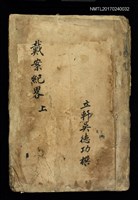 NMTL20170240032
戴案紀畧 上
立軒吳德功撰